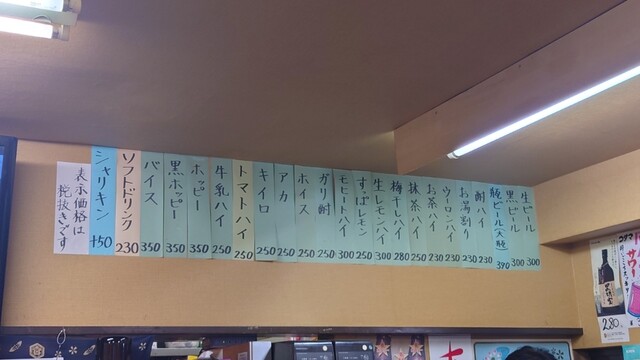 生ビール 300
黒ビール 300
瓶ビール(大瓶) 390
酎ハイ 230
お湯割り 230
ウーロンハイ 230
お茶ハイ 230
抹茶ハイ 250
梅干しハイ 280
生レモンハイ 300
すぱレモン 250
モヒートハイ 300
ガリ酎 250
ホイス 250
アカ 250
キイロ 250
トマトハイ 250
牛乳ハイ 250
ホッピー 350
黒ホッピー 350
バイス 350
ソフトドリンク 230
シャリキン +50
表示価格は
税抜きです
サワー
280